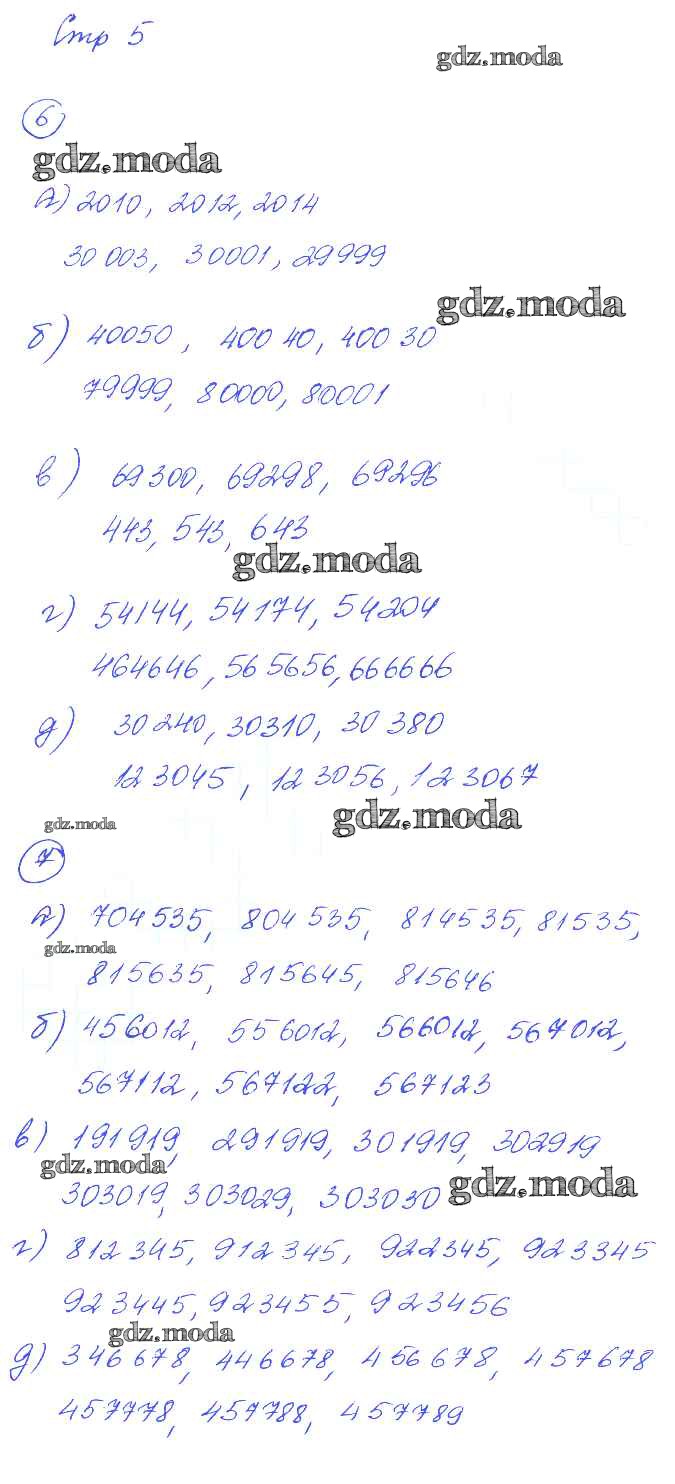 Стр 5
gdz.moda
6
gdz.moda
а) 2010, 2012, 2014
30 003, 30001, 29999
gdz.moda
б) 40050, 400 40, 400 30
79999, 80000, 80001
в) 69300, 69298, 69296
443, 543, 643
gdz.moda
г) 54144, 54174, 54204
464646, 565656, 666666
д) 30240, 30310, 30380
123045, 123056, 123067
gdz.moda
gdz.moda
7
а) 704535, 804535, 814535, 81535,
gdz.moda
815635, 815645, 815646
б) 456012, 556012, 566012, 567012,
567112, 567122, 567123
в) 191919, 291919, 301919, 302919
gdz.moda
303019, 303029, 303030
gdz.moda
г) 812345, 912345, 922345, 923345
923445, 923455, 923456
gdz.moda
д) 346678, 446678, 456678, 457678
457778, 457788, 457789